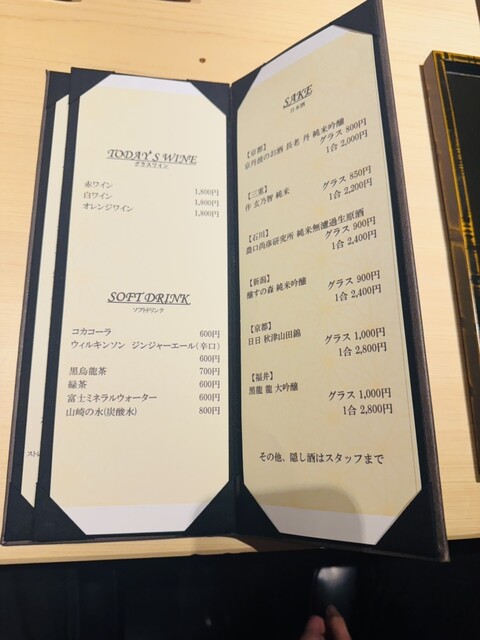 TODAY'S WINE
グラスワイン
赤ワイン 1,800円
白ワイン 1,800円
オレンジワイン 1,800円
SOFT DRINK
ソフトドリンク
コカコーラ 600円
ウィルキンソン ジンジャーエール(辛口)
600円
黒烏龍茶 700円
緑茶 600円
富士ミネラルウォーター 600円
山崎の水(炭酸水) 800円
ストレ
SAKE
日本酒
【京都】
京丹後のお酒 長老 丹 純米吟醸
グラス 800円
1合 2,000円
【三重】
作 玄乃智 純米
グラス 850円
1合 2,200円
【石川】
農口尚彦研究所 純米無濾過生原酒
グラス 900円
1合 2,400円
【新潟】
醸す森 純米吟醸
グラス 900円
1合 2,400円
【京都】
日日 秋津山田錦
グラス 1,000円
1合 2,800円
【福井】
黒龍 龍 大吟醸
グラス 1,000円
1合 2,800円
その他、隠し酒はスタッフまで